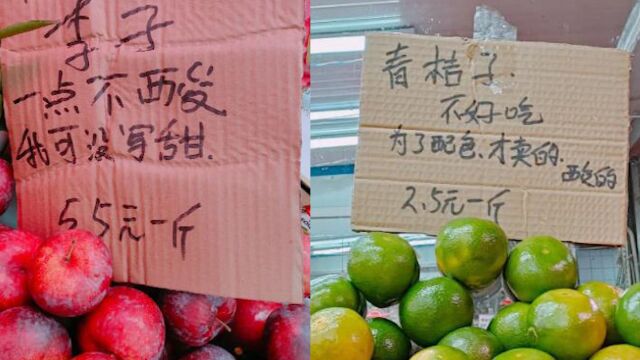 李子
一点不酸
我可没写甜.
5.5元一斤
青桔子.
不好吃
为了配色、才卖的.
酸的
2.5元一斤